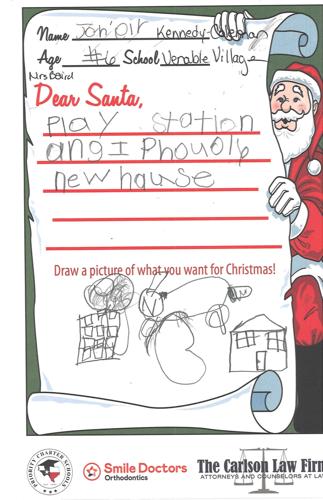 Name Jon'Dir Kennedy-Coleman
Age #6 School Venable Village
Mrs Baird
Dear Santa,
Play station
ang I Phouolb
new hause
Draw a picture of what you want for Christmas!
PRIORITY CHARTER SCHOOLS
Smile Doctors
Orthodontics
The Carlson Law Firm
ATTORNEYS AND COUNSELORS AT LA